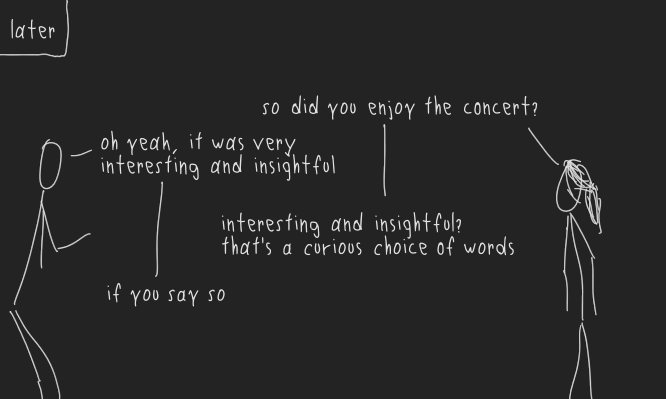 later
so did you enjoy the concert?
oh yeah, it was very
interesting and insightful
interesting and insightful?
that's a curious choice of words
if you say so